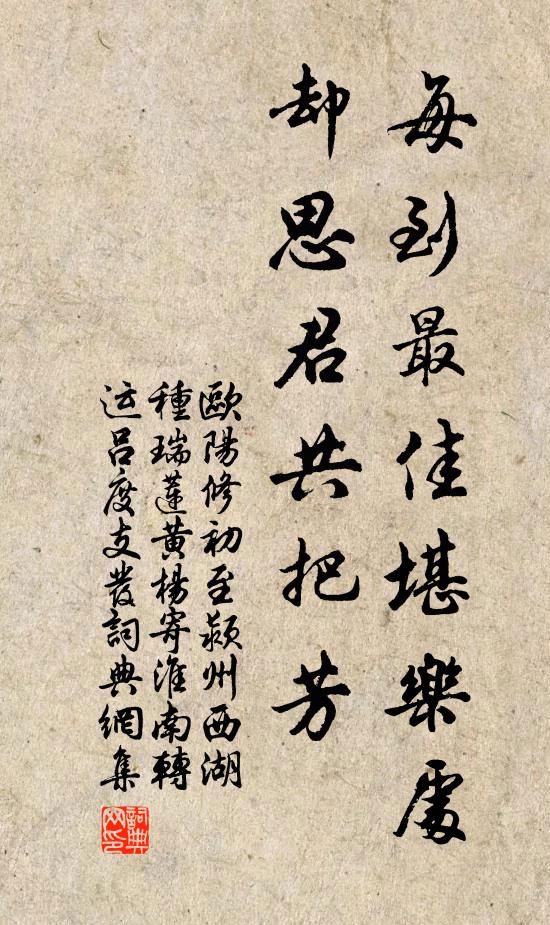 每到最佳堪樂處
却思君共把芳
歐陽修初至潁州西湖
種瑞蓮黃楊寄淮南轉
运吕度支發詞典網集
詞典网印